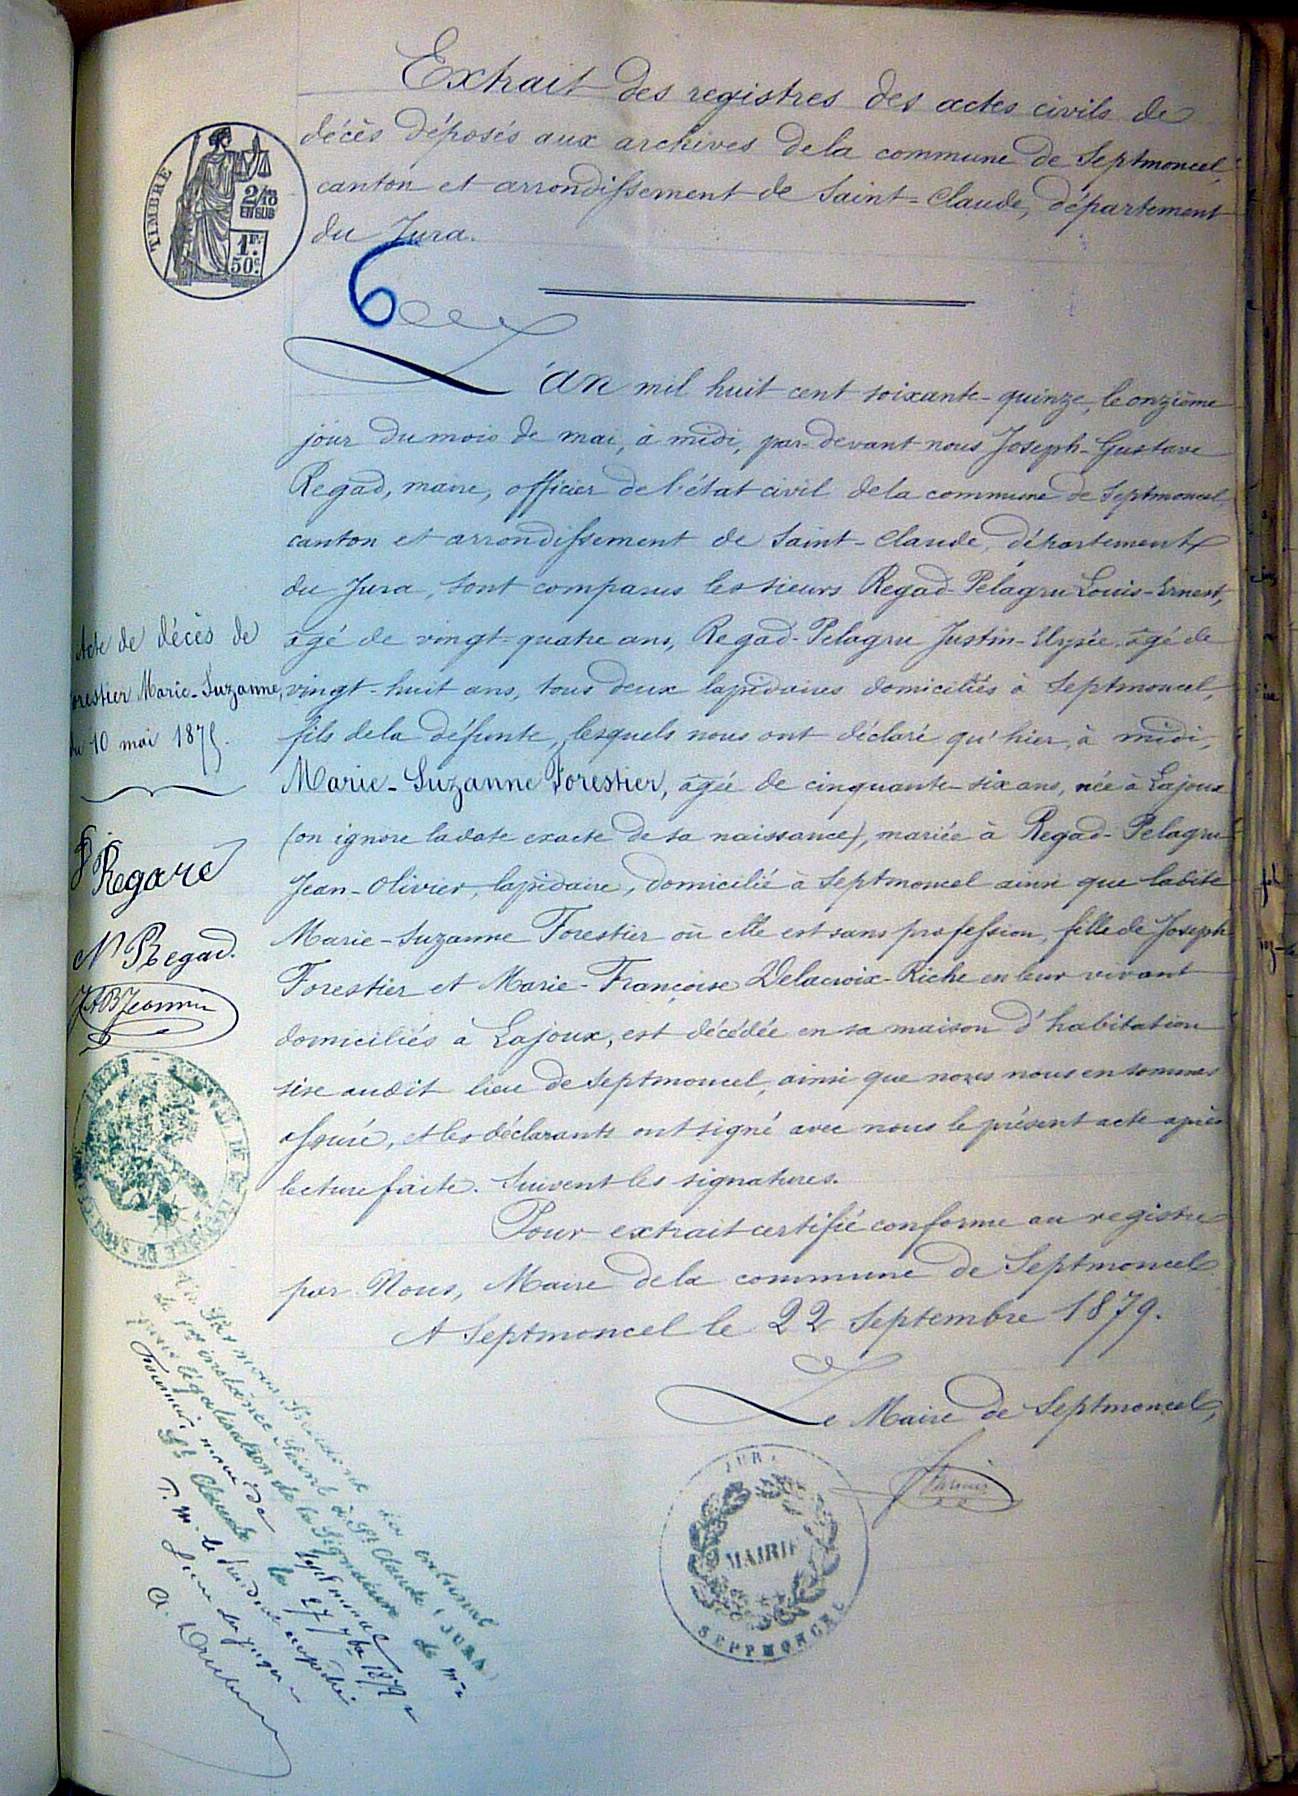 Extrait des registres des actes civils de
décès déposés aux archives de la commune de Septmoncel,
canton et arrondissement de Saint-Claude, département
du Jura.
TIMBRE
2/10
EN SUS
1F.
50c.
6
L'an mil huit cent soixante-quinze, le onzième
jour du mois de mai, à midi, par-devant nous Joseph-Gustave
Regad, maire, officier de l'état civil de la commune de Septmoncel,
canton et arrondissement de Saint-Claude, département
du Jura, sont comparus les sieurs Regad-Pélagru Louis-Ernest,
âgé de vingt-quatre ans, Regad-Pelagru Justin-Elysée, âgé de
vingt-huit ans, tous deux lapidaires domiciliés à Septmoncel,
fils de la défunte, lesquels nous ont déclaré qu'hier, à midi,
Marie-Suzanne Forestier, âgée de cinquante-six ans, née à Lajoux
(on ignore la date exacte de sa naissance), mariée à Regad-Pelagru
Jean-Olivier, lapidaire, domicilié à Septmoncel ainsi que ladite
Marie-Suzanne Forestier où elle est sans profession, fille de Joseph
Forestier et Marie-Françoise Delacroix-Riche en leur vivant
domiciliés à Lajoux, est décédée en sa maison d'habitation
sise audit lieu de Septmoncel, ainsi que nous nous en sommes
assuré, et les déclarants ont signé avec nous le présent acte après
lecture faite. Suivent les signatures.
Pour extrait certifié conforme au registre
par Nous, Maire de la commune de Septmoncel
A Septmoncel le 22 Septembre 1879.
Le Maire de Septmoncel,
JURA
MAIRIE
SEPTMONCEL
Acte de décès de
Forestier Marie-Suzanne,
du 10 mai 1875.
Regard
N Regad.
JAB Jeannin
président du tribunal
de 1re instance séant à St Claude (JURA)
pour légalisation de la signature de Mr
maire de Septmoncel
St Claude le 27 7bre 1879